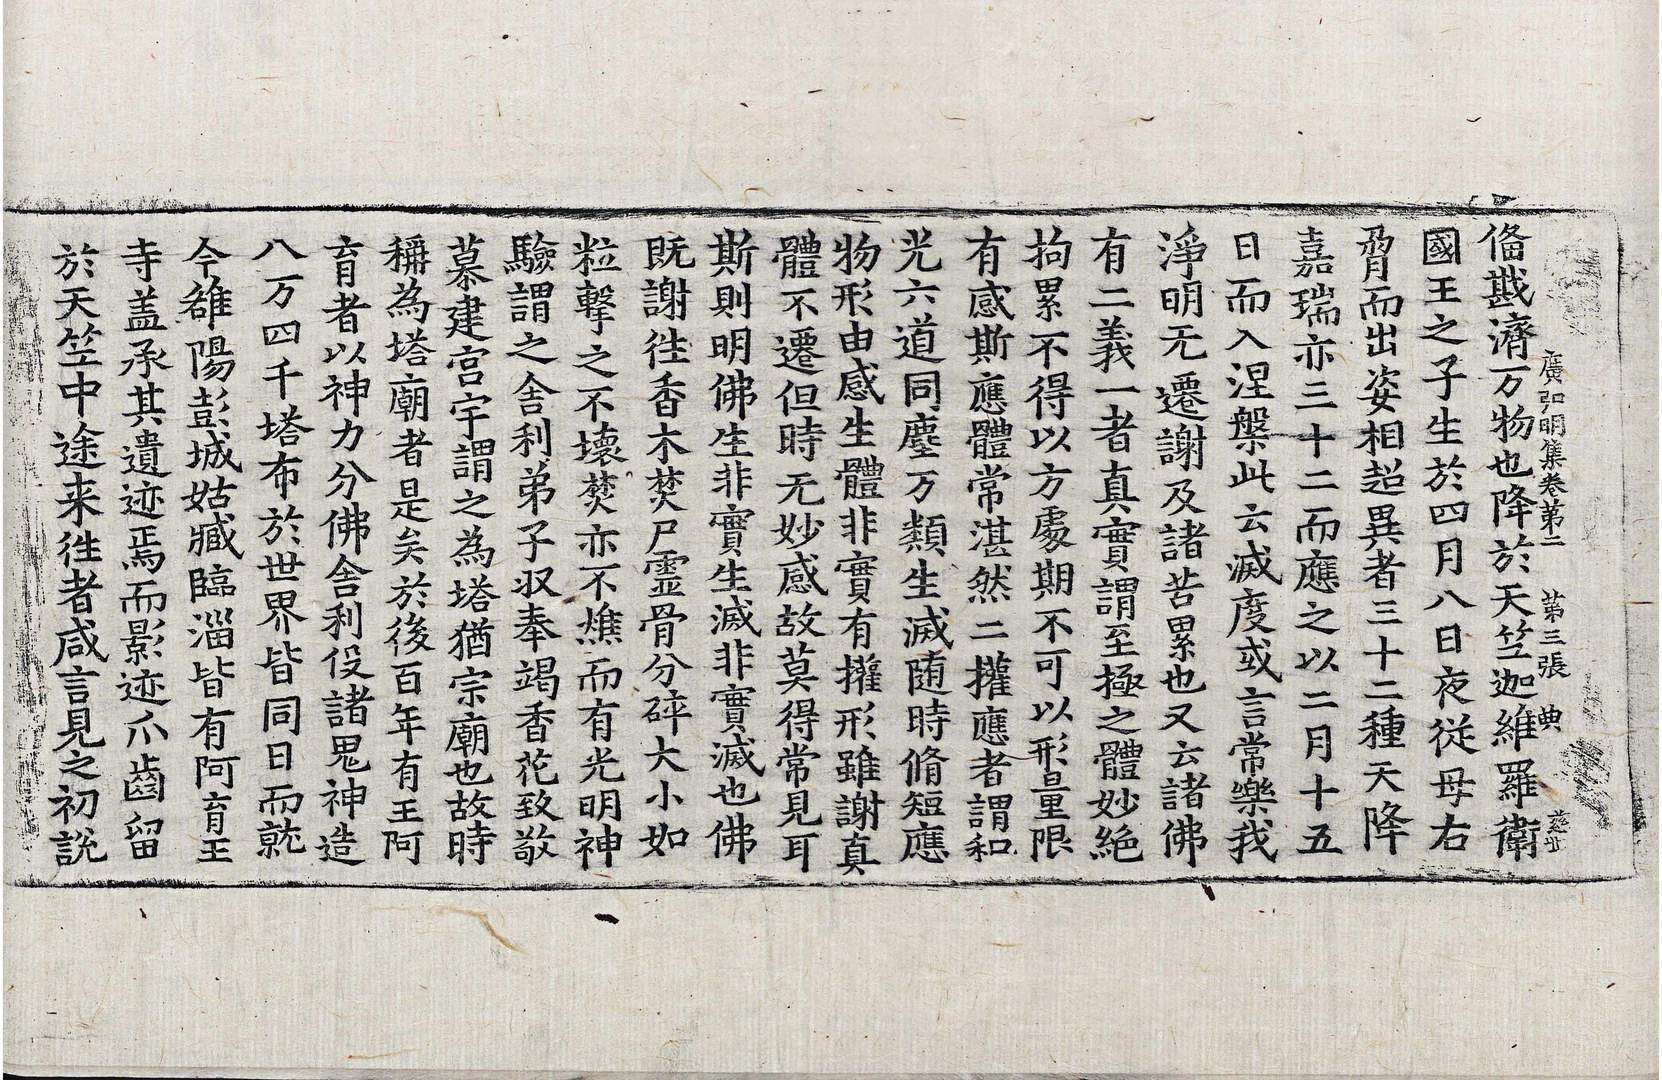 廣弘明集卷第二 第三張 典
俻戡濟万物也降於天竺迦維羅衛
國王之子生於四月八日夜従母右
脅而出姿相超異者三十二種天降
嘉瑞亦三十二而應之以二月十五
日而入涅槃此云滅度或言常樂我
淨明无遷謝及諸苦累也又云諸佛
有二義一者真實謂至極之體妙絶
拘累不得以方處期不可以形量限
有感斯應體常湛然二權應者謂和
光六道同塵万類生滅随時脩短應
物形由感生體非實有權形雖謝真
體不遷但時无妙感故莫得常見耳
斯則明佛生非實生滅非實滅也佛
既謝徃香木焚尸霊骨分碎大小如
粒擊之不壞焚亦不燋而有光明神
驗謂之舍利弟子収奉竭香花致敬
慕建宫宇謂之為塔猶宗廟也故時
稱為塔廟者是矣於後百年有王阿
育者以神力分佛舍利役諸鬼神造
八万四千塔布於世界皆同日而就
今雒陽彭城姑臧臨淄皆有阿育王
寺盖承其遺迹焉而影迹爪齒留
於天竺中途来徃者咸言見之初説